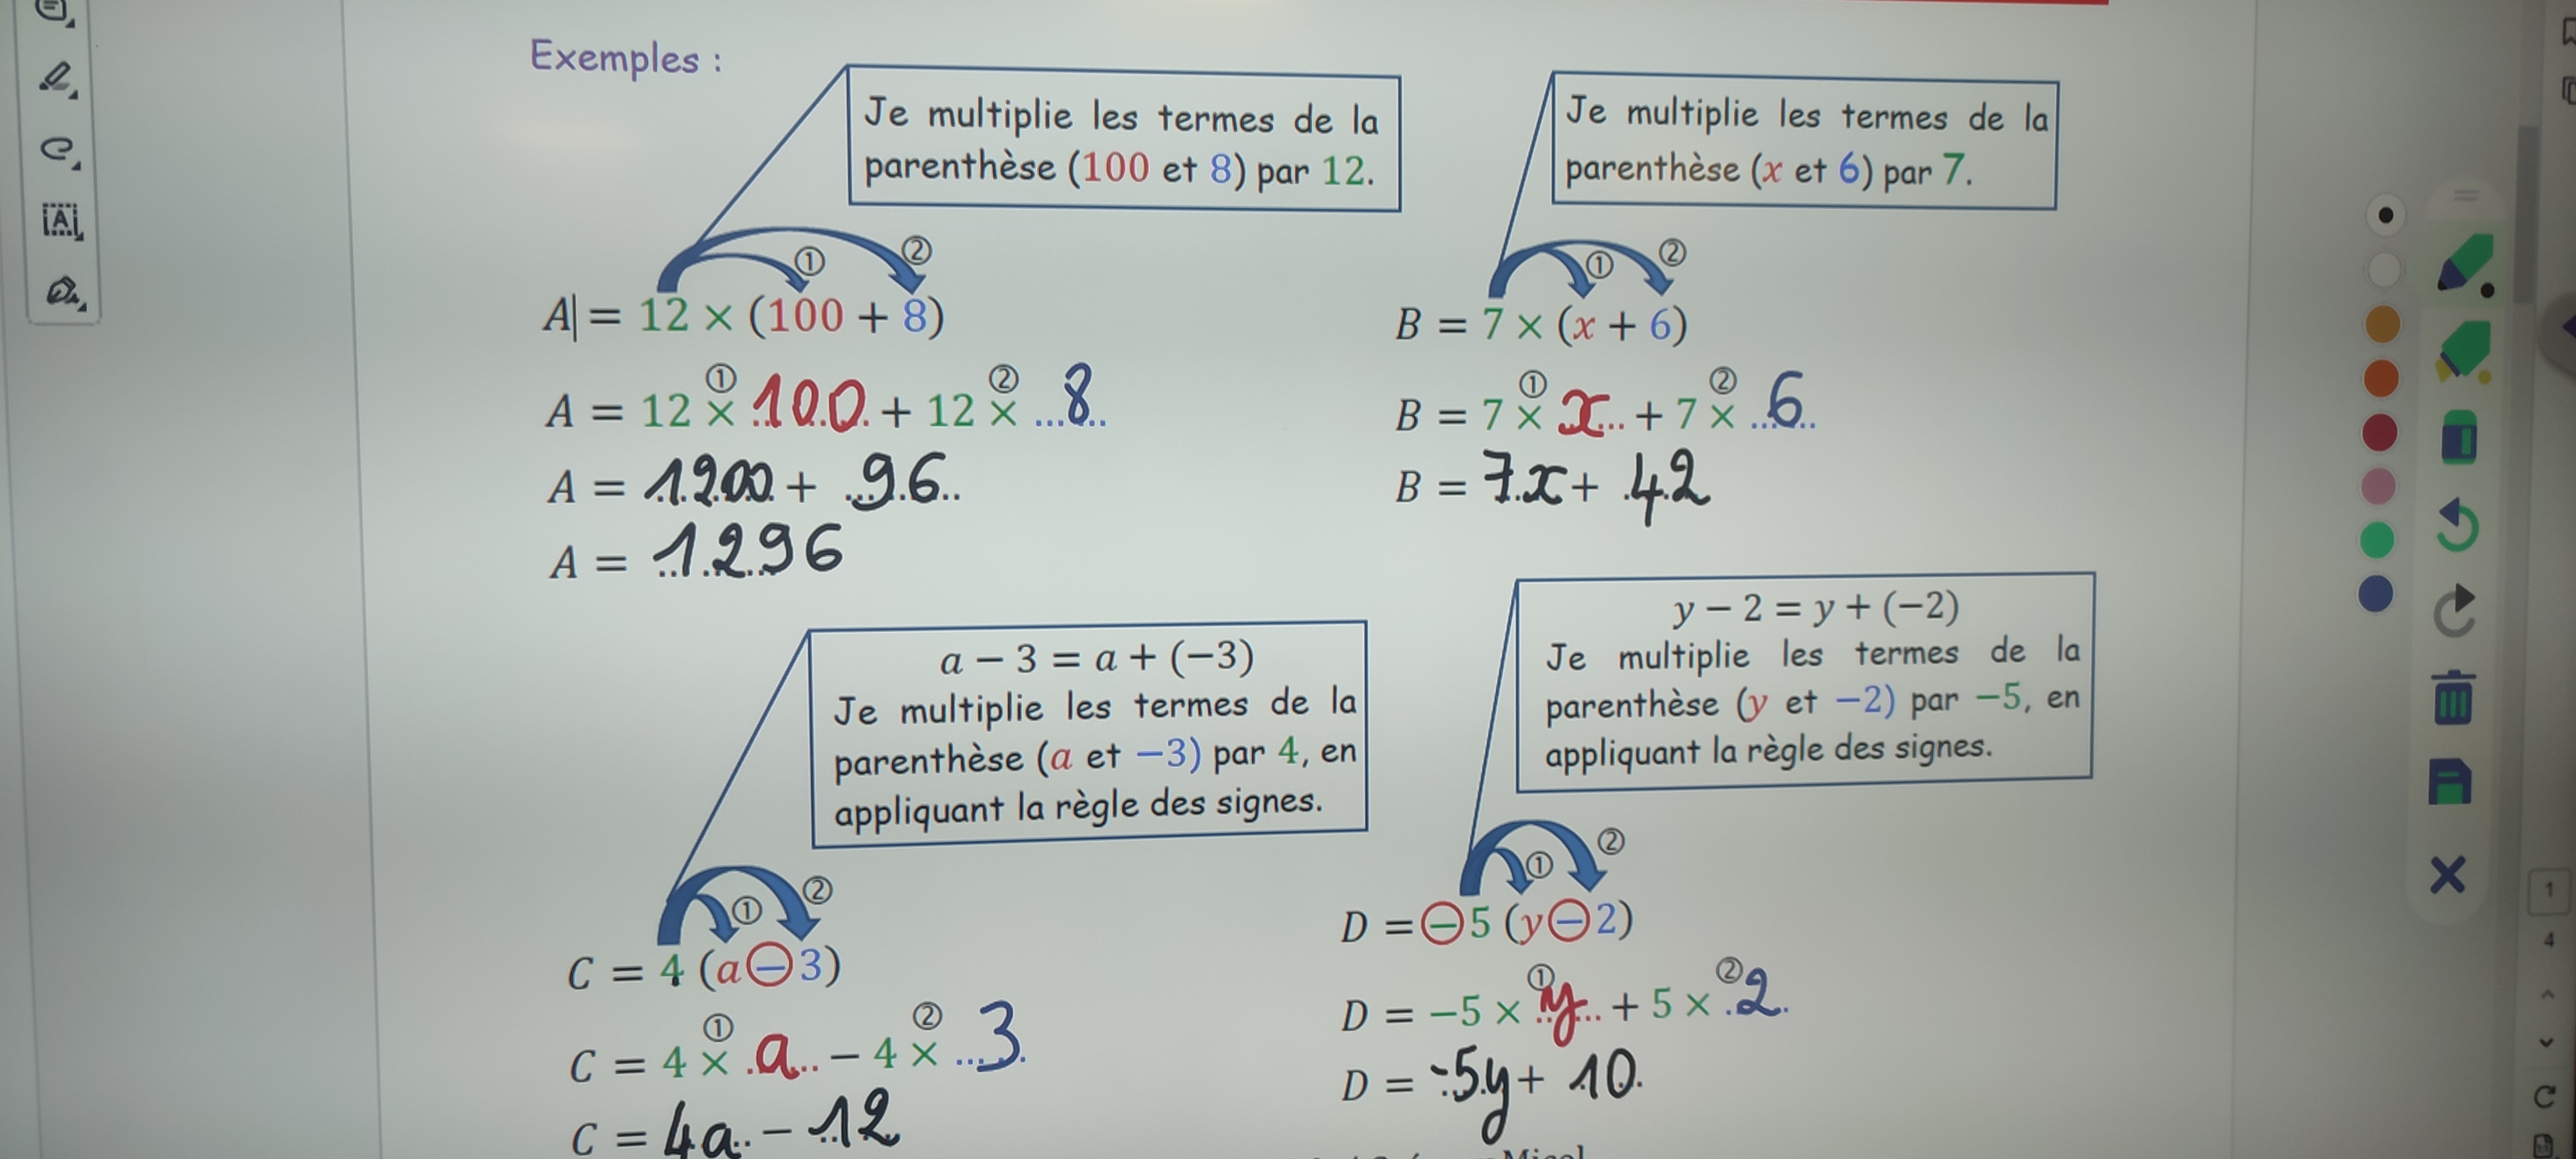 Exemples :
Je multiplie les termes de la
parenthèse (100 et 8) par 12.
① ②
A = 12 × (100 + 8)
① ②
A = 12 × 100 + 12 × 8
A = 1200 + 96
A = 1296
Je multiplie les termes de la
parenthèse (x et 6) par 7.
① ②
B = 7 × (x + 6)
① ②
B = 7 × x + 7 × 6
B = 7x + 42
a − 3 = a + (−3)
Je multiplie les termes de la
parenthèse (a et −3) par 4, en
appliquant la règle des signes.
① ②
C = 4 (a − 3)
① ②
C = 4 × a − 4 × 3
C = 4a − 12
y − 2 = y + (−2)
Je multiplie les termes de la
parenthèse (y et −2) par −5, en
appliquant la règle des signes.
① ②
D = −5 (y − 2)
① ②
D = −5 × y + 5 × 2
D = -5y + 10
A
1
4